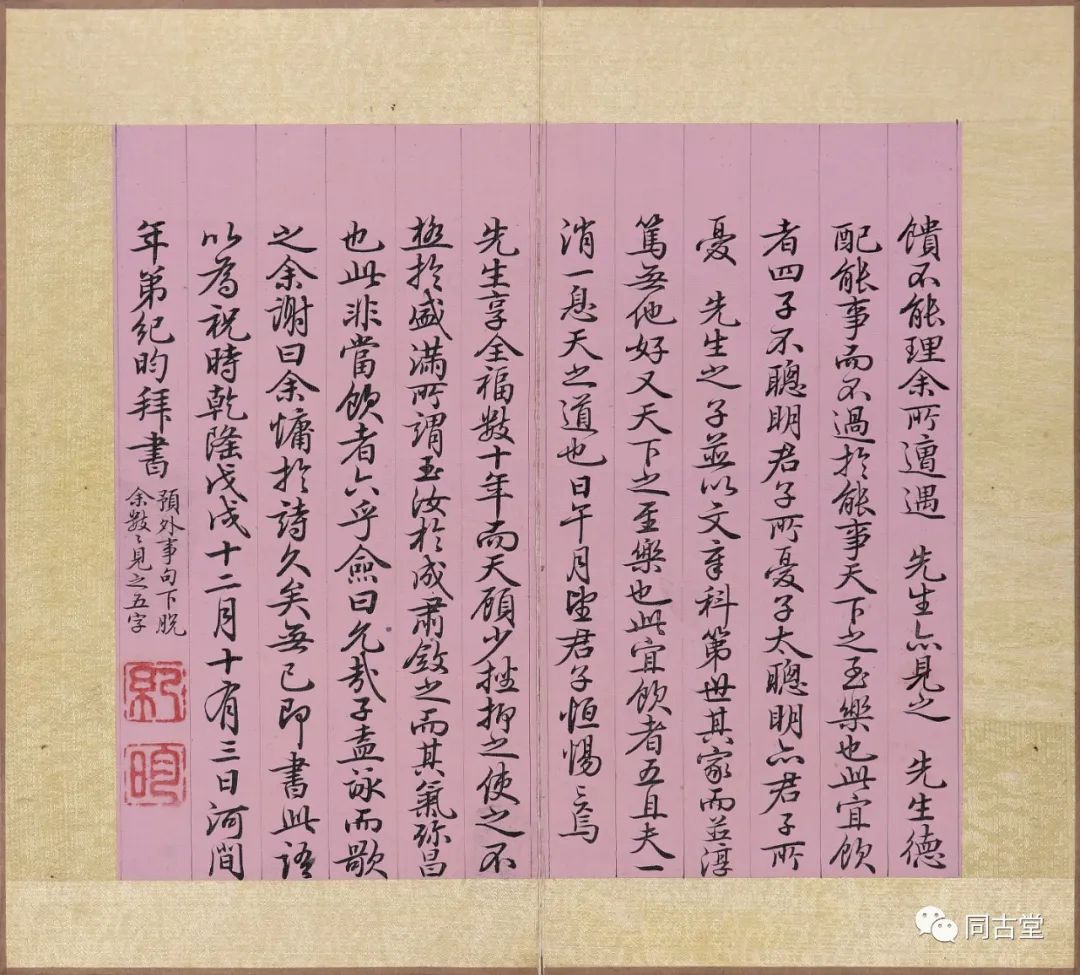 馈不能理余所遭遇 先生亦見之 先生德
配能事而不過於能事天下之至樂也此宜飲
者四子不聰明君子所憂子太聰明亦君子所
憂 先生之子並以文章科第世其家而並淳
篤無他好又天下之至樂也此宜飲者五且夫一
消一息天之道也日午月望君子恒惕〻焉
先生享全福數十年而天顧少挫抑之使之不
極於盛滿所謂玉汝於成肅斂之而其氣弥昌
也此非當飲者六乎僉曰允哉子盍詠而歌
之余謝曰余慵於詩久矣無已即書此語
以為祝時乾隆戊戌十二月十有三日河間
年第紀昀拜書
預外事句下脫
余數〻見之五字
紀
昀
同古堂